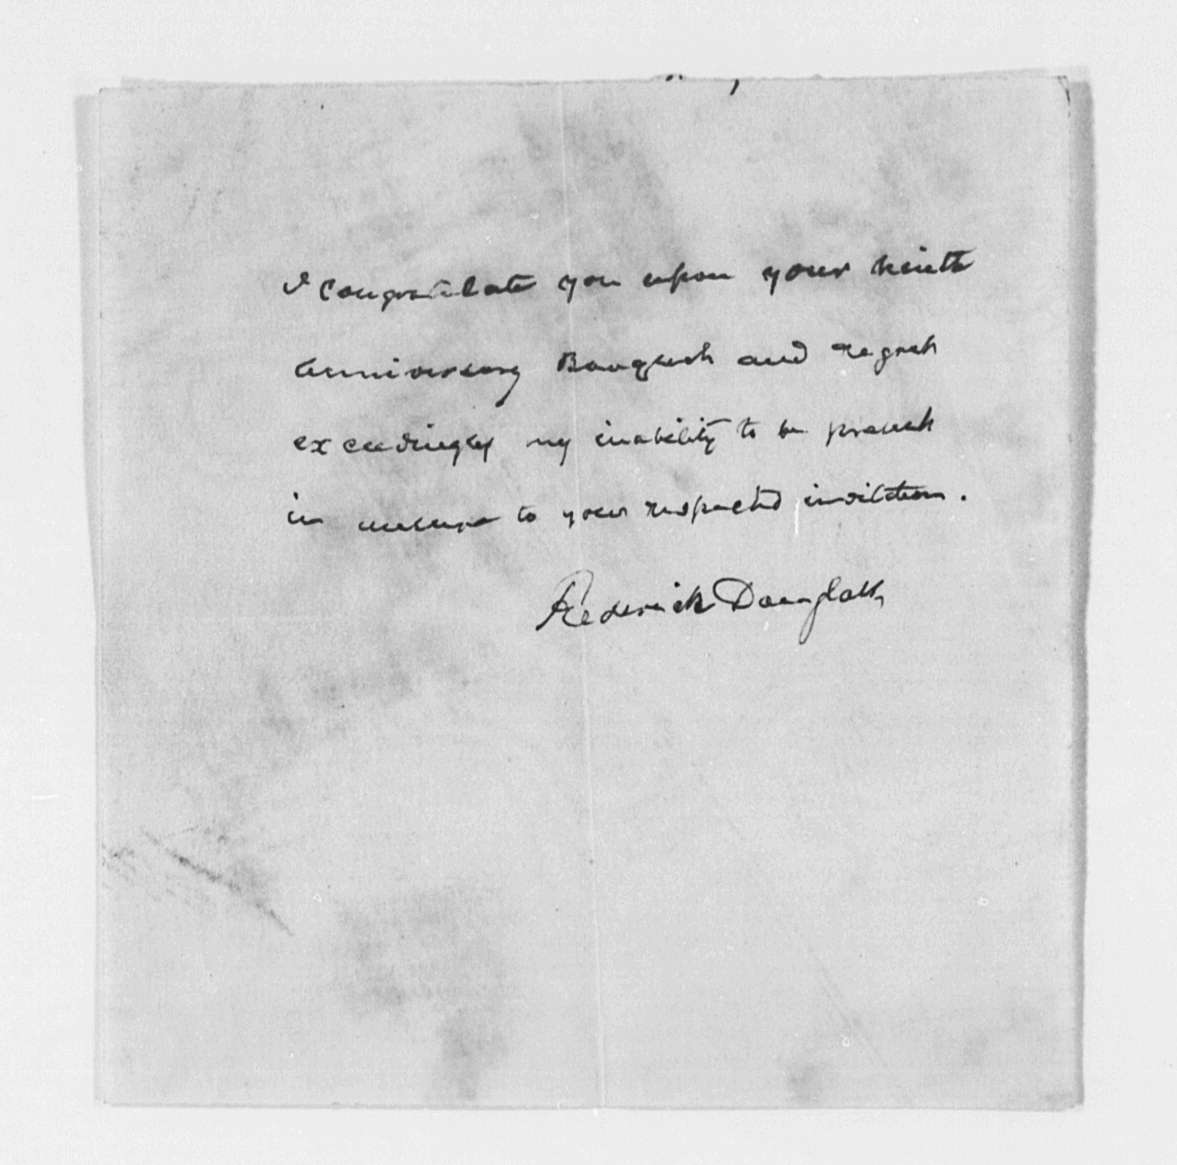 I congratulate you upon your ninth
Anniversary Banquet and regret
exceedingly my inability to be present
in answer to your respected invitation.
Frederick Douglass